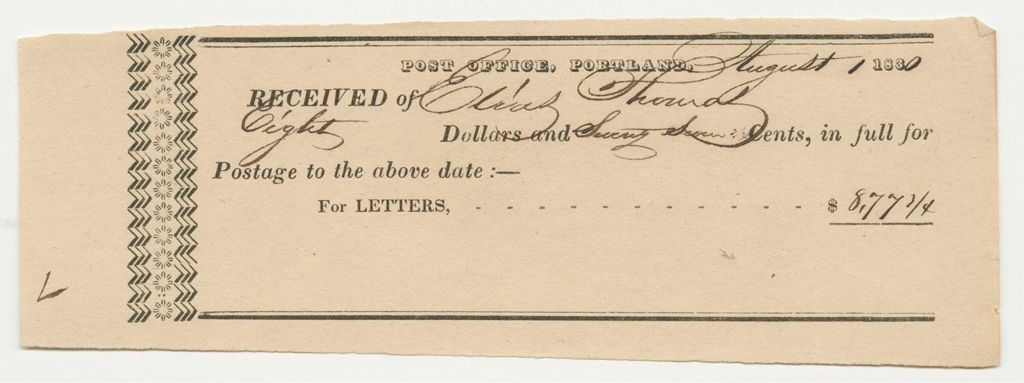 POST OFFICE, PORTLAND, August 1 1830
RECEIVED of Elias Thomas
Eight Dollars and Seventy Seven Cents, in full for
Postage to the above date :—
For LETTERS, - - - - - - - - - - - - - $ 8,77 3/4